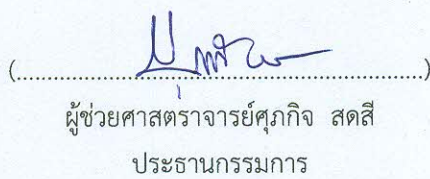 (........................................................................)
ผู้ช่วยศาสตราจารย์ศุภกิจ สดสี
ประธานกรรมการ